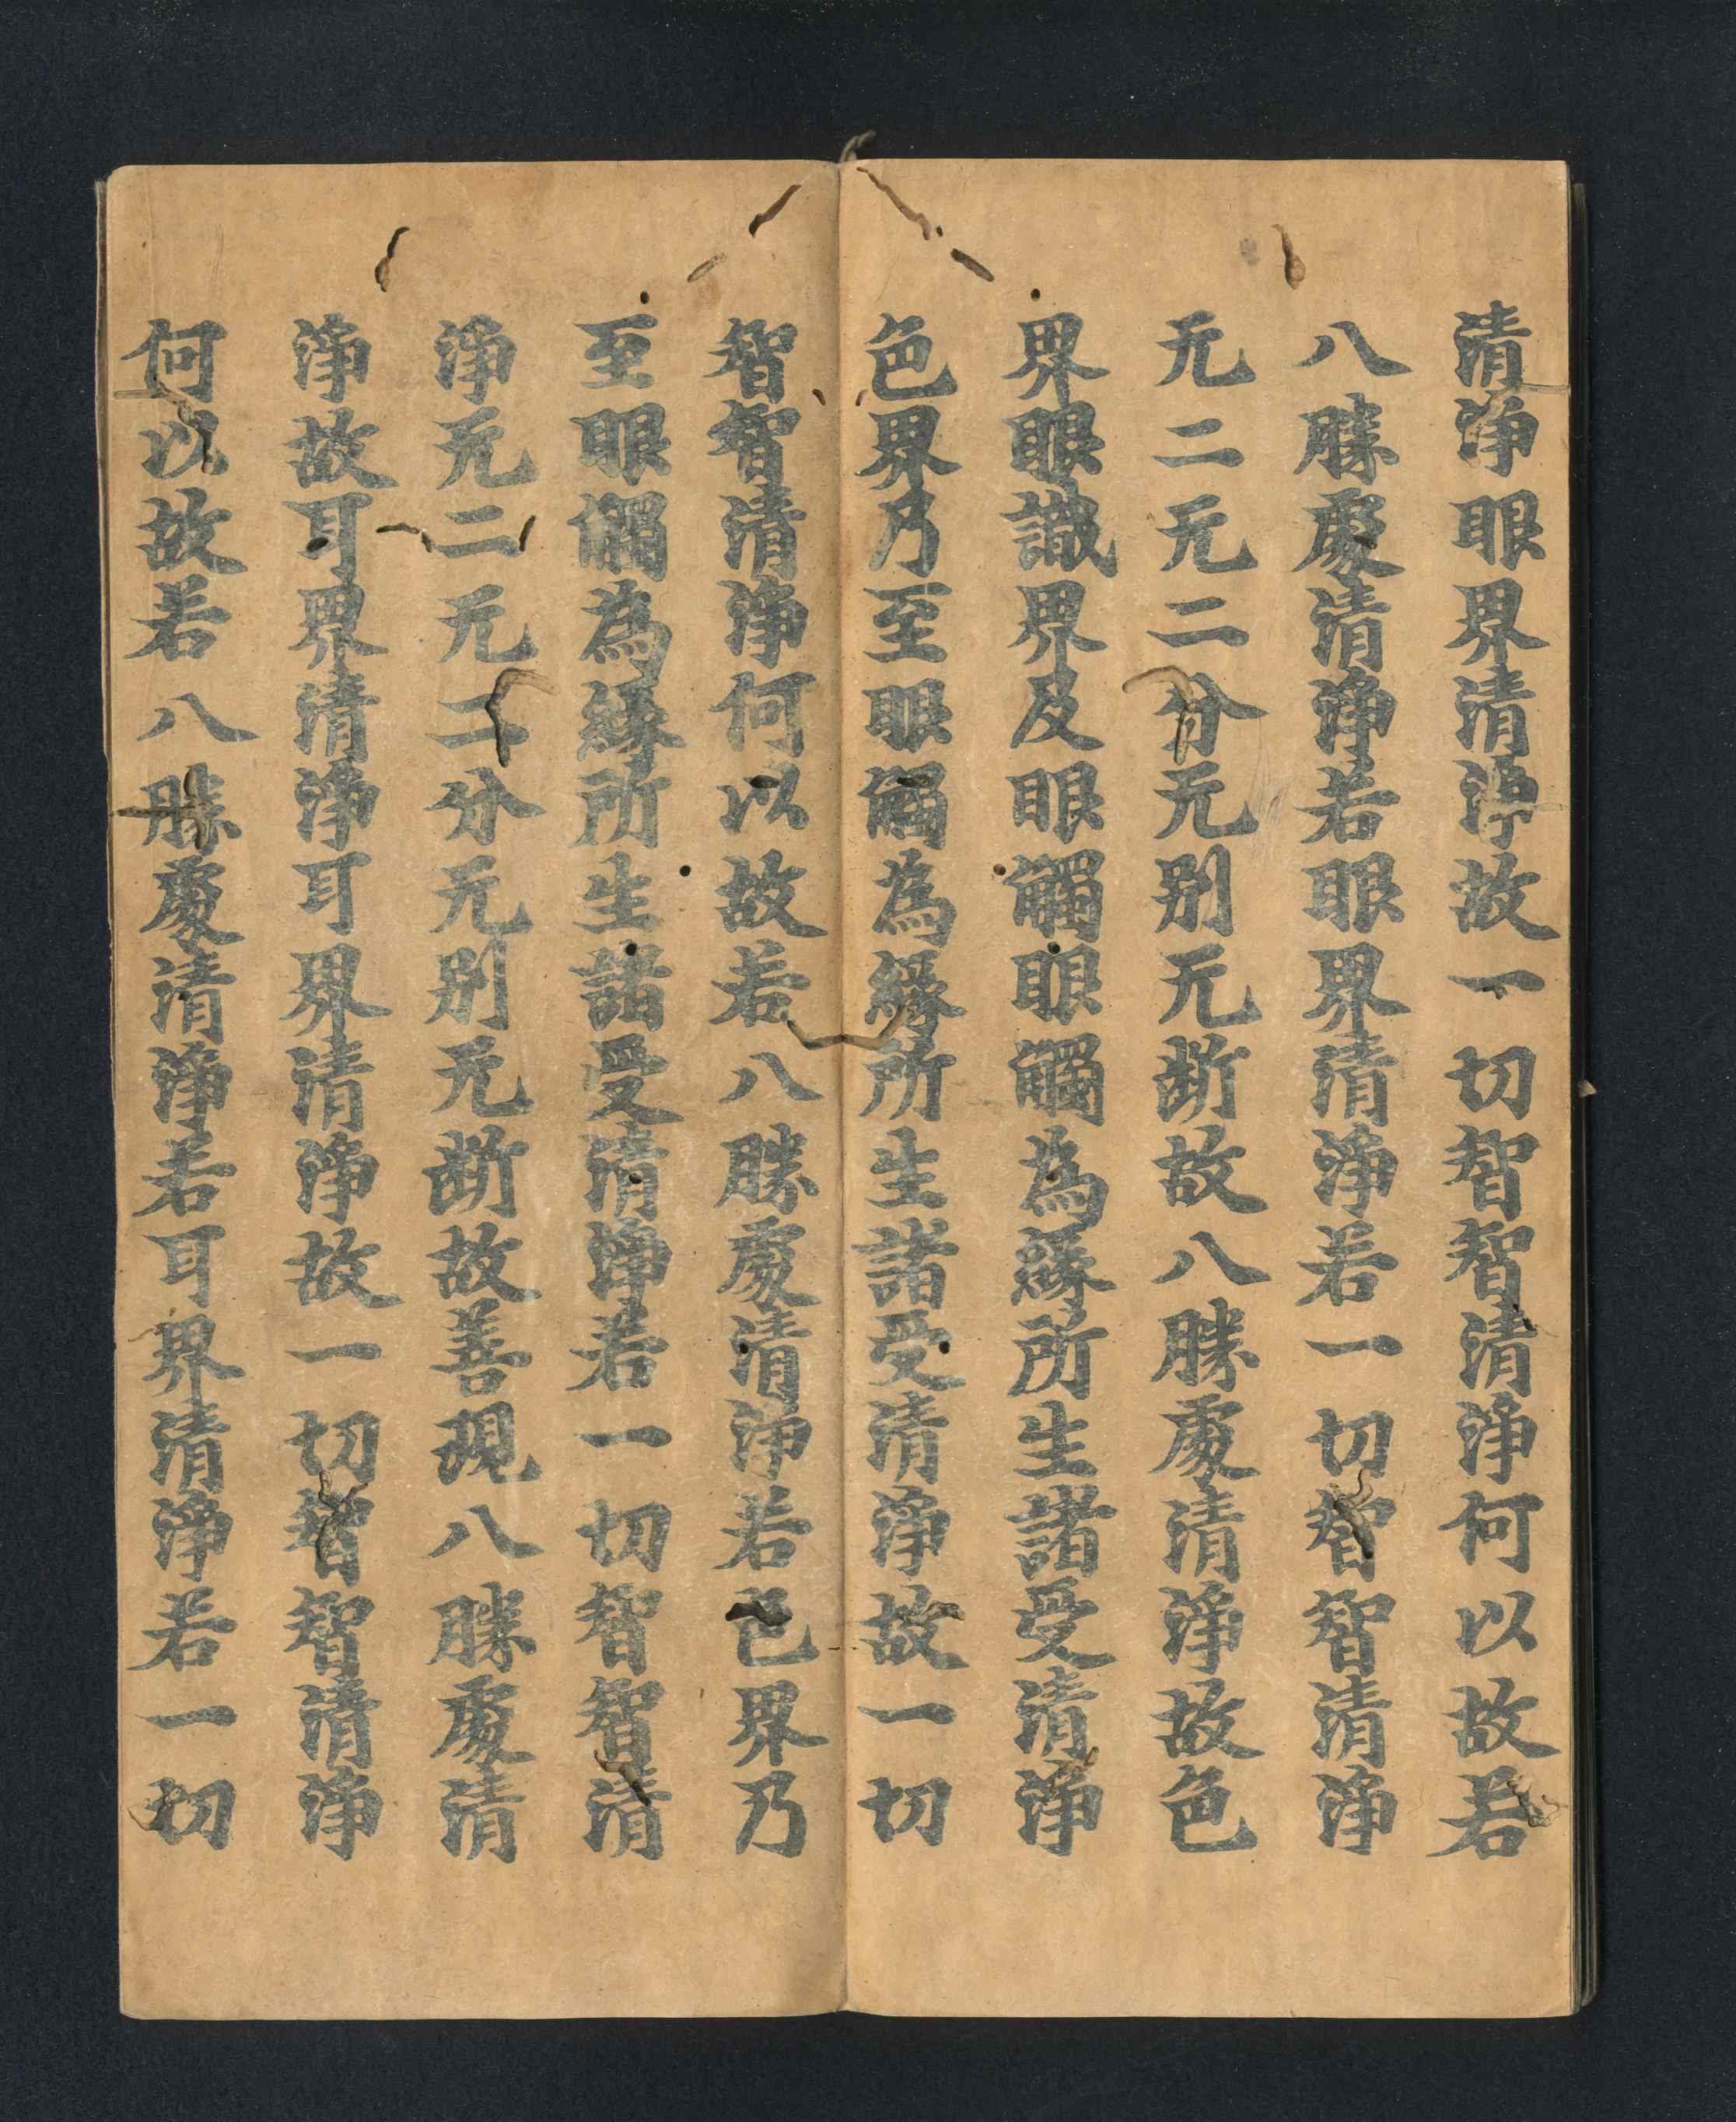 清淨眼界清淨故一切智智清淨何以故若
八勝處清淨若眼界清淨若一切智智清淨
无二无二分无别无断故八勝處清淨故色
界眼識界及眼觸眼觸為縁所生諸受清淨
色界乃至眼觸為縁所生諸受清淨故一切
智智清淨何以故若八勝處清淨若色界乃
至眼觸為縁所生諸受清淨若一切智智清
淨无二无二分无别无断故善現八勝處清
淨故耳界清淨耳界清淨故一切智智清淨
何以故若八勝處清淨若耳界清淨若一切